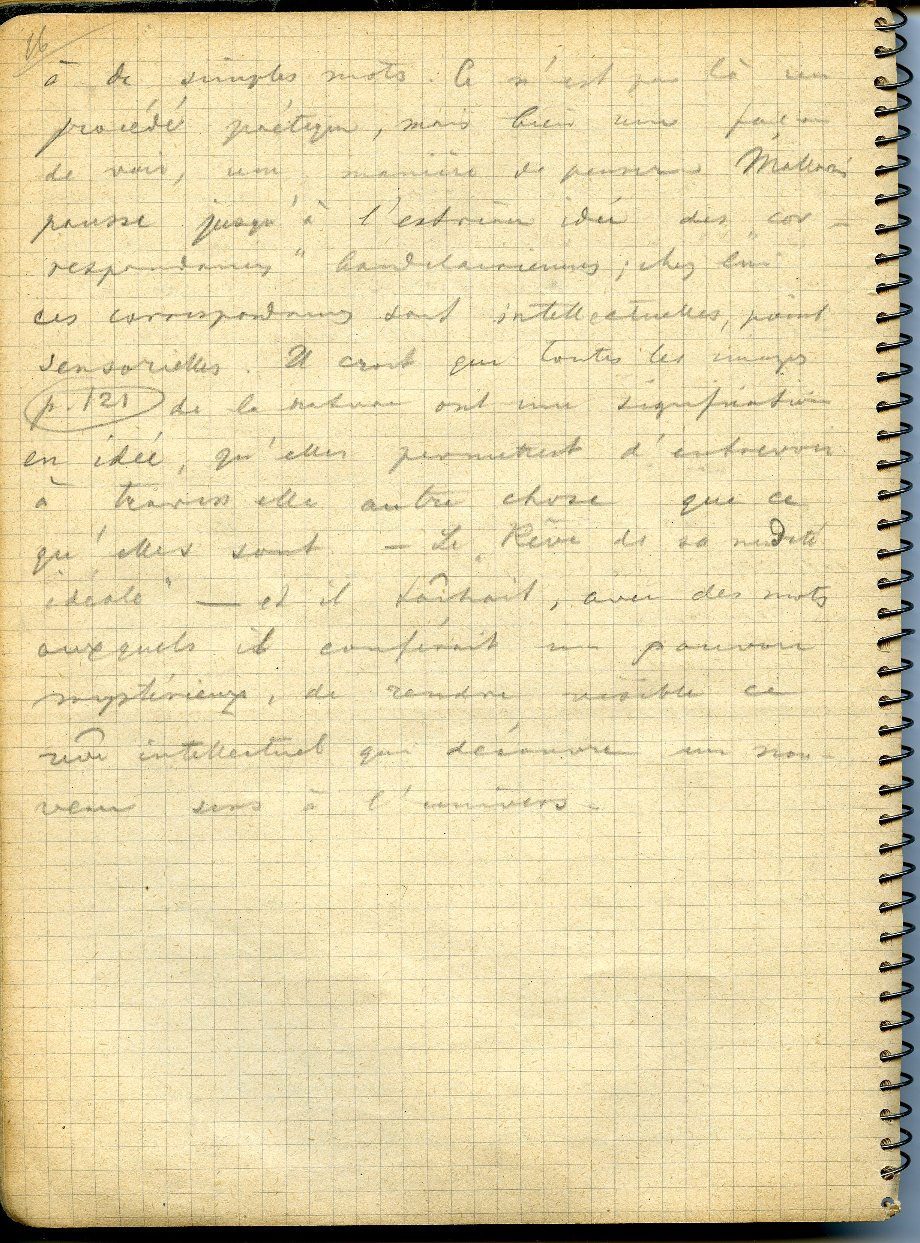 16
à de simples mots. Ce n'est pas là un
procédé poétique, mais bien une façon
de voir, une manière de penser. Mallarmé
pousse jusqu'à l'extrême idée des "cor-
respondances" baudelairiennes; chez lui
ces correspondances sont intellectuelles, point
sensorielles. Il croit que toutes les images
p. 121 de la nature ont une signification
en idée, qu'elles permettent d'entrevoir
à travers elle autre chose que ce
qu'elles sont — Le "Rêve de sa nudité
idéale" — et il tâchait, avec des mots
auxquels il conférait un pouvoir
mystérieux, de rendre visible ce
rêve intellectuel qui découvre un nou-
veau sens à l'univers.